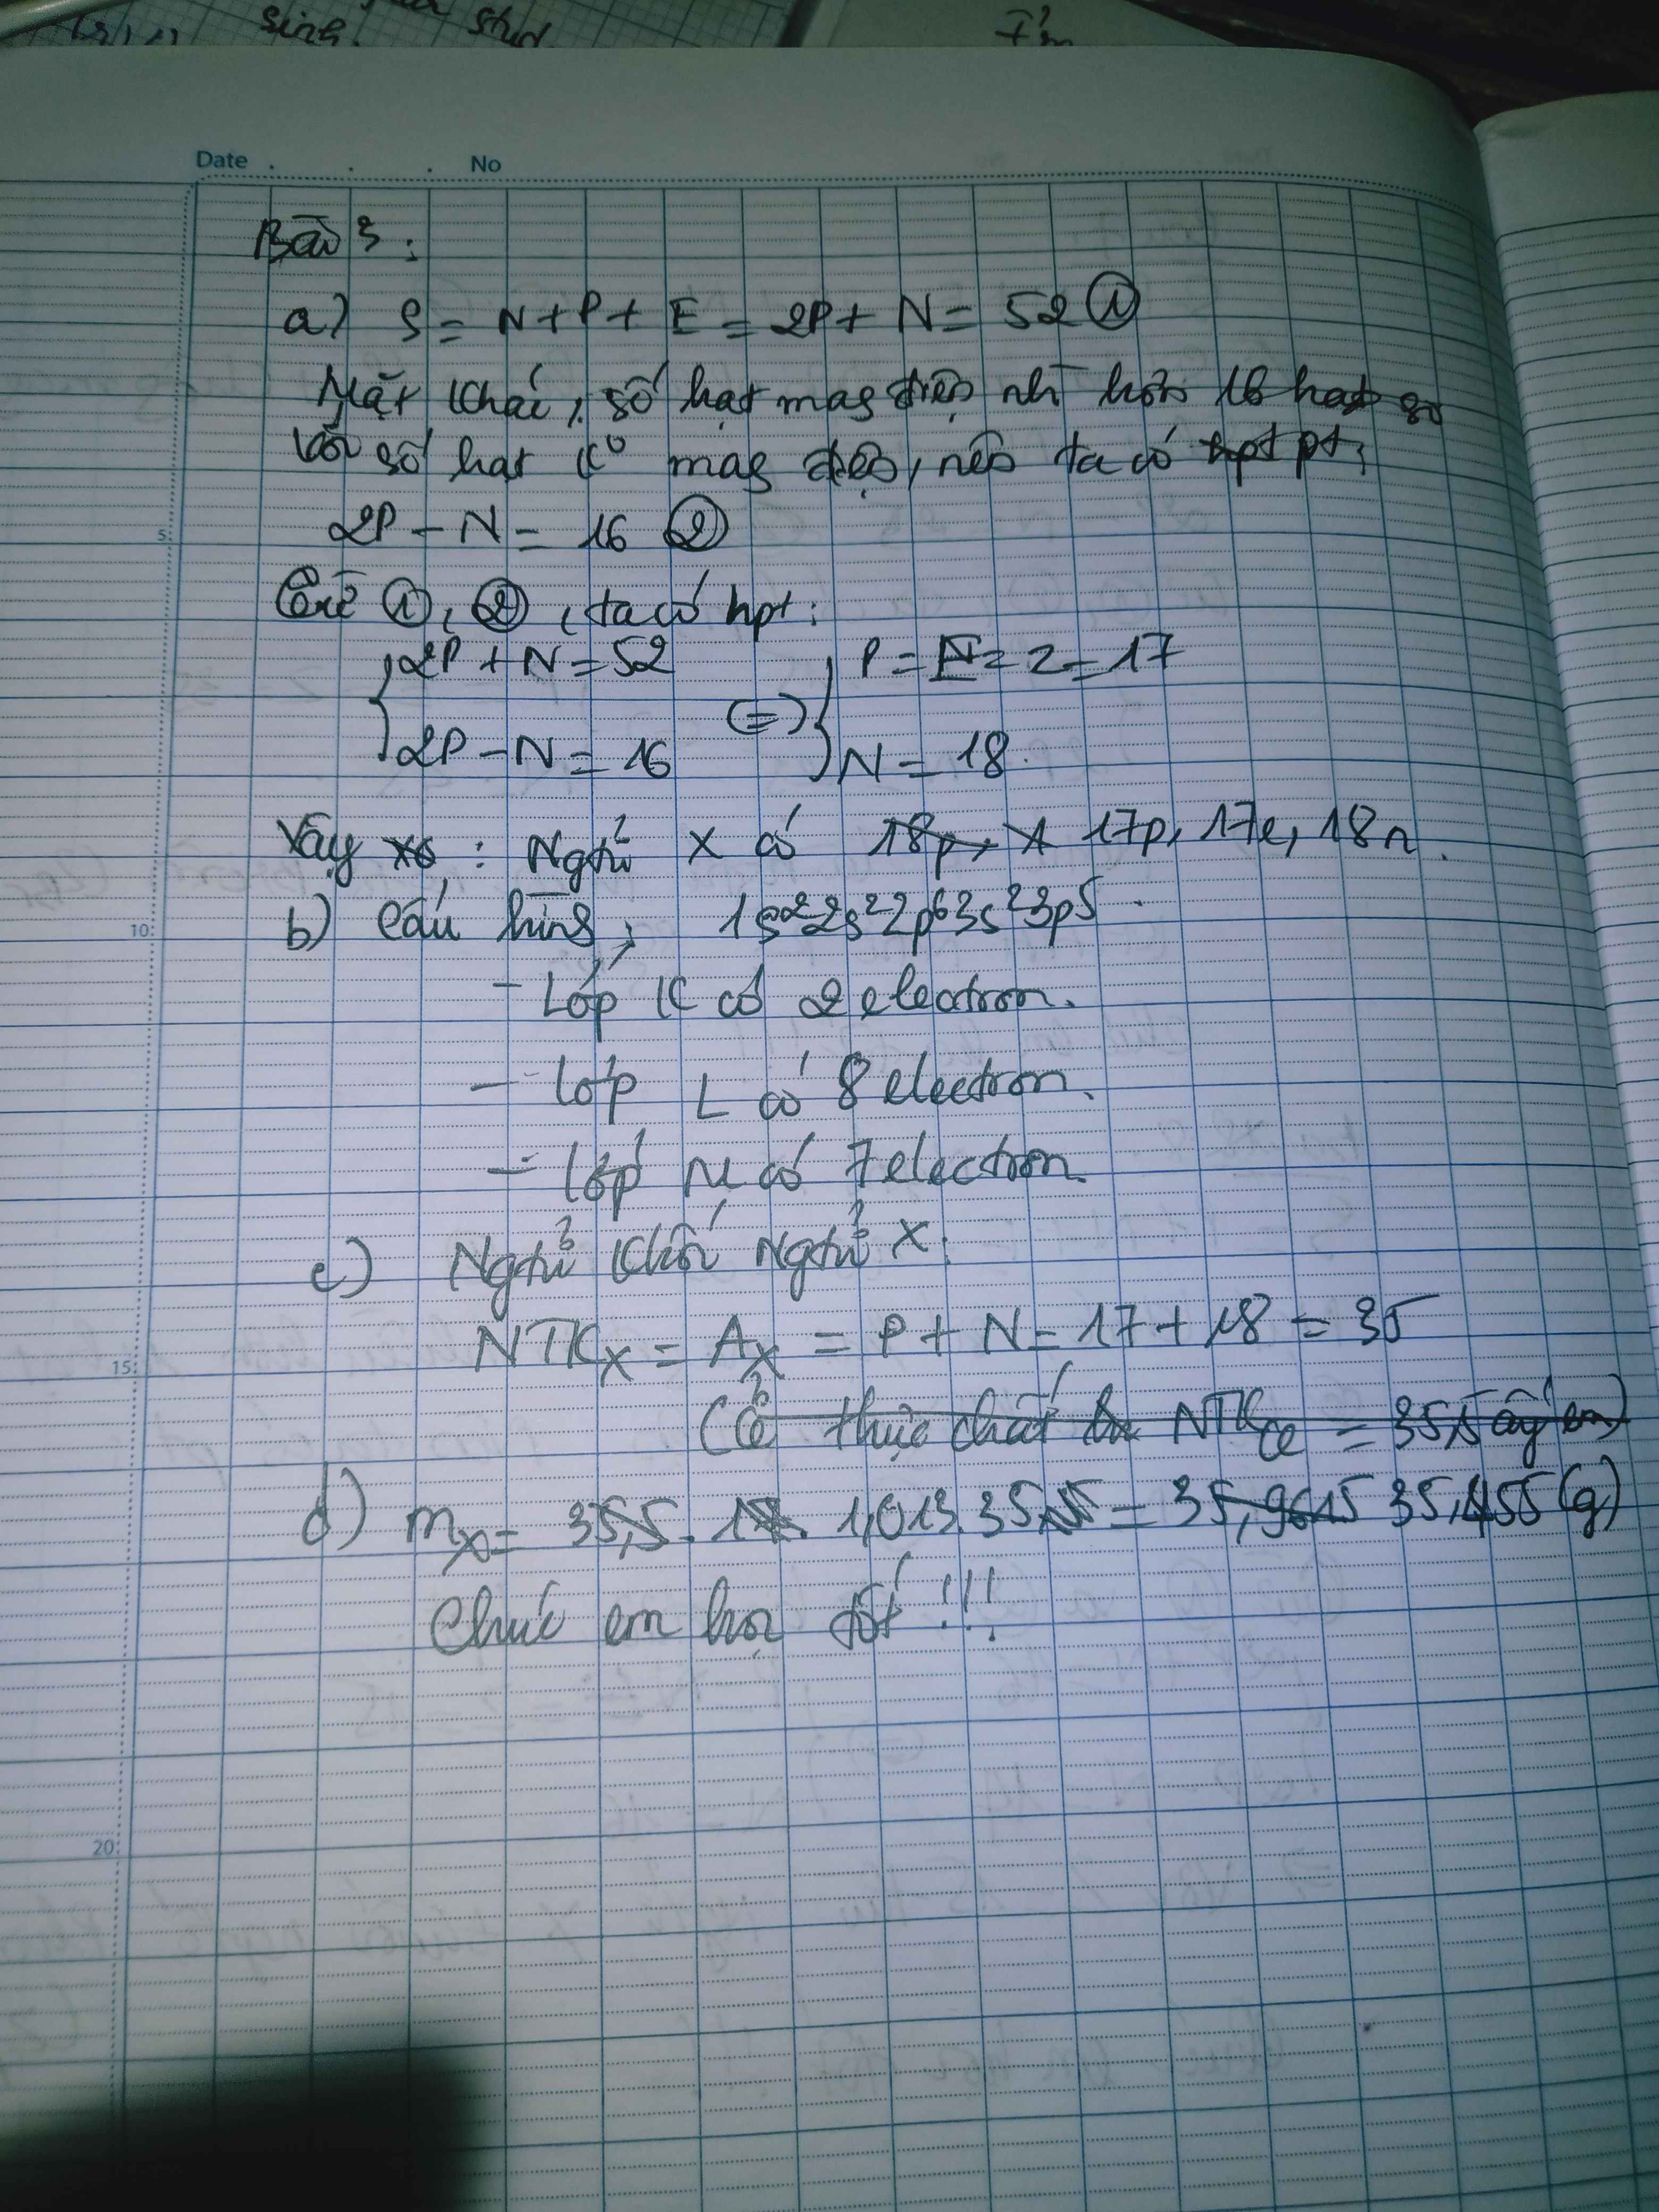 sinh stud
Date No
Bài 3:
a) S = N + P + E = 2P + N = 52 ①
Mặt khác, số hạt mag điện nh hơn 16 hạt so
với số hạt k⁰ mag điện, nên ta có hpt pt:
2P - N = 16 ②
5:
Từ ①, ②, ta có hpt:
2P + N = 52 P = E = Z = 17
(=)
2P - N = 16 N = 18.
Vậy : Ngtử X có 18p, 17p, 17e, 18n.
b) Cấu hìng: 1s²2s²2p⁶3s²3p5.
10:
- Lớp K có 2 electron.
- Lớp L có 8 electron.
- Lớp M có 7 electron.
c) Ngtử khối Ngtử X:
NTKₓ = Aₓ = P + N = 17 + 18 = 35
15:
(Cl thực chất là NTK Cl = 35,5 ấy em)
d) mₓ = 35,5. 1,013.35,5 = 35,9615 35,455 (g)
Chúc em học tốt !!!
20: